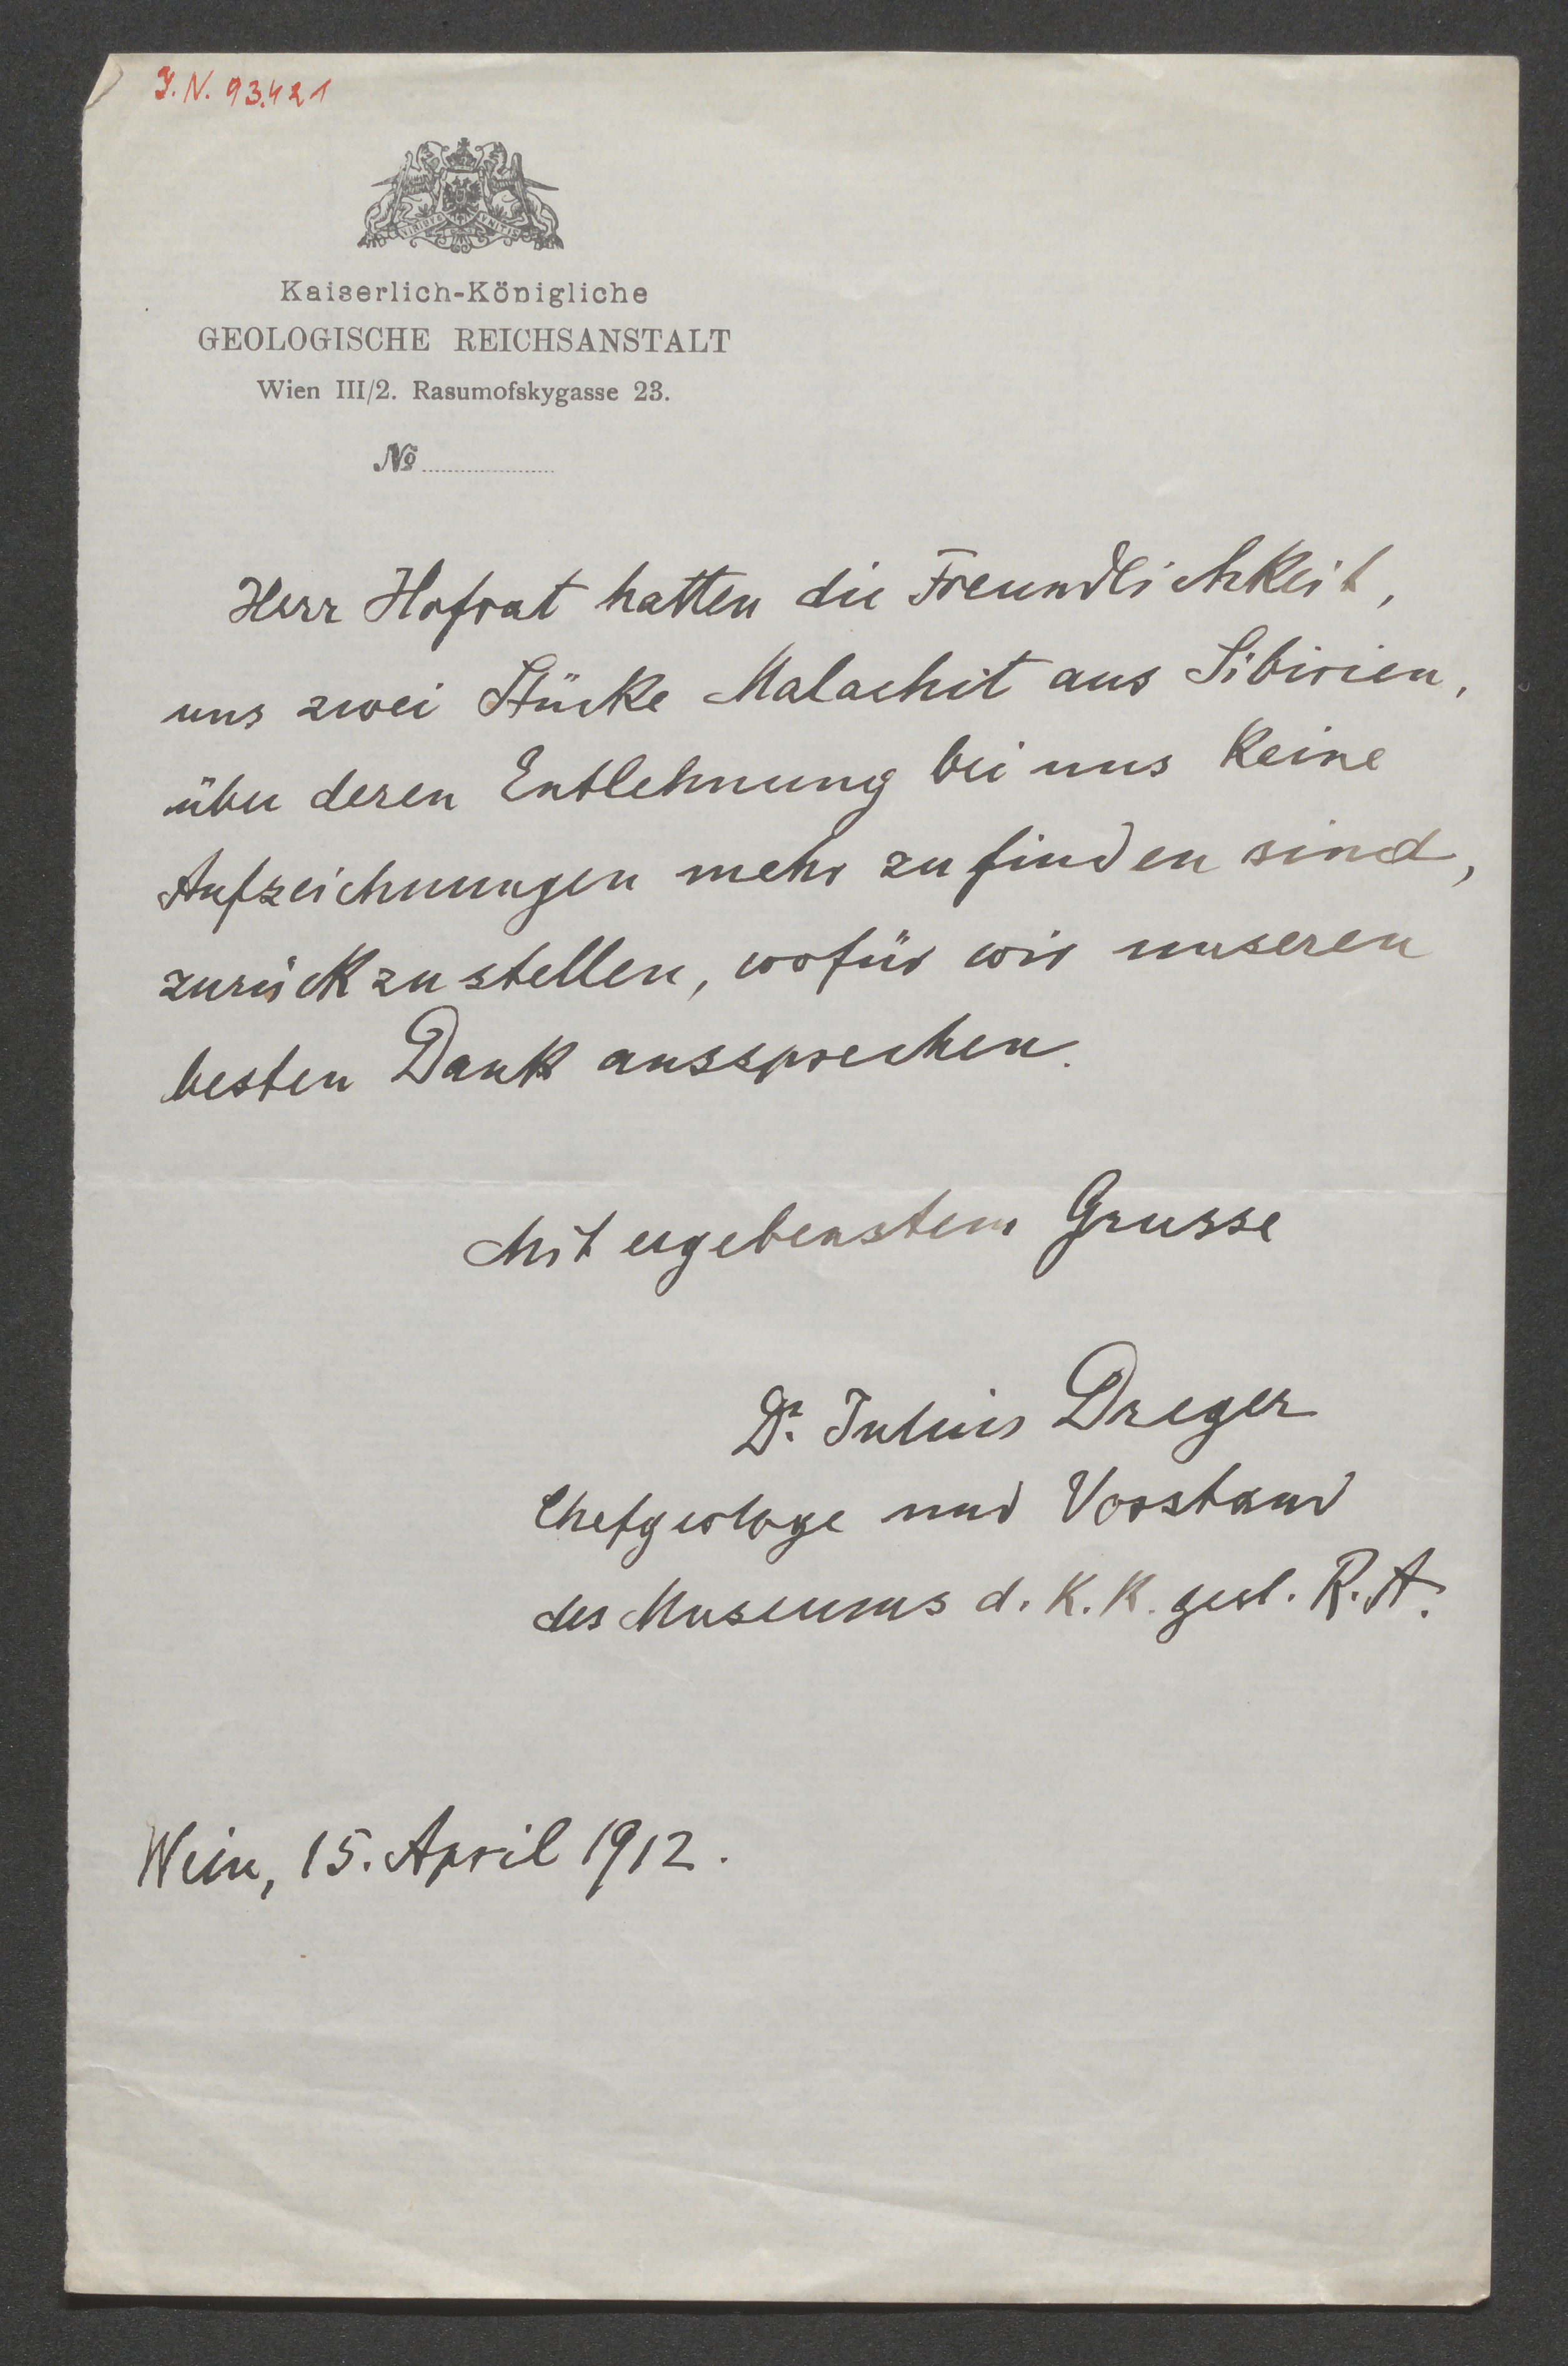 J.N. 93.421
VIRIBVS VNITIS
Kaiserlich-Königliche
GEOLOGISCHE REICHSANSTALT
Wien III/2. Rasumofskygasse 23.
No
Herr Hofrat hatten die Freundlichkeit,
uns zwei Stücke Malachit aus Sibirien,
über deren Entlehnung bei uns keine
Aufzeichnungen mehr zu finden sind,
zurückzustellen, wofür wir unseren
besten Dank aussprechen.
Mit ergebenstem Grusse
Dr. Julius Dreger
Chefgeologe und Vorstand
des Museums d. K. K. geol. R. A.
Wien, 15. April 1912.